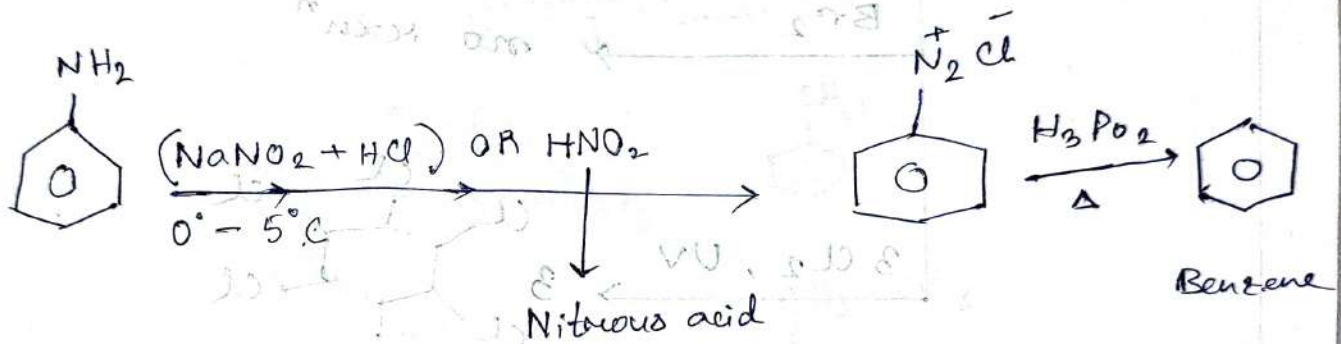 NH₂
(NaNO₂ + HCl) OR HNO₂
0° - 5°C
Nitrous acid
N₂⁺ Cl⁻
H₃PO₂
Δ
Benzene